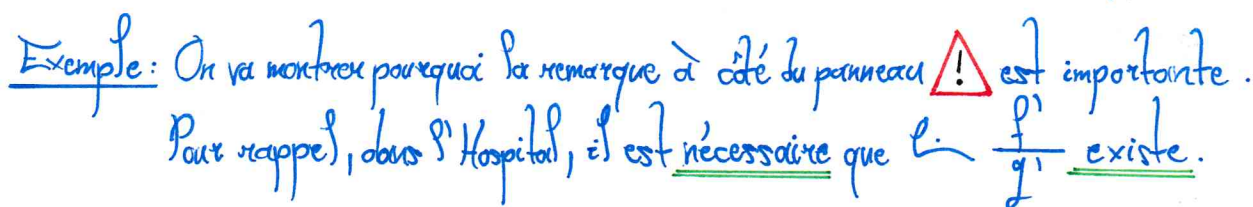 Exemple: On va montrer pourquoi la remarque à côté du panneau ⚠ est importante.
Pour rappel, dans l'Hospital, il est nécessaire que lim f'/g' existe.